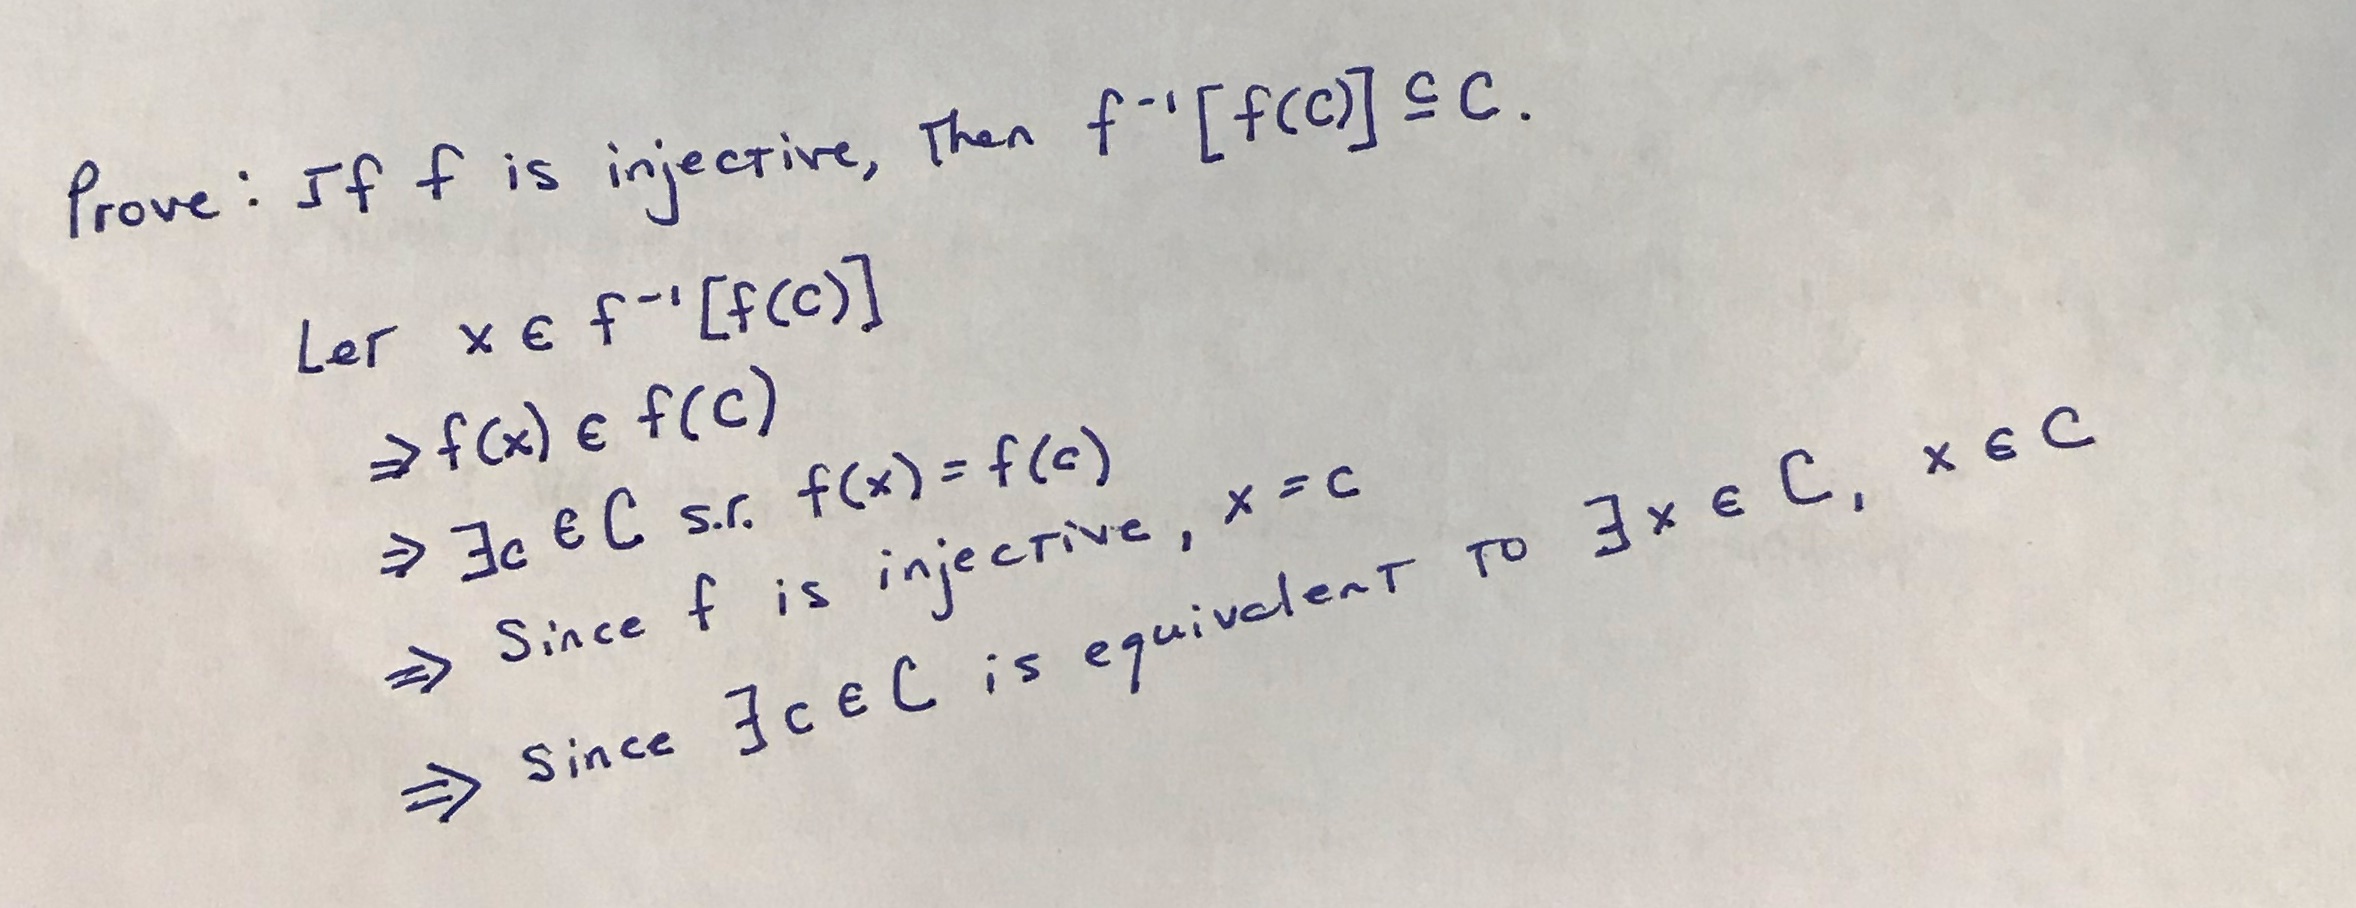 Prove: If f is injective, then f⁻¹[f(C)] ⊆ C.
Let x ∈ f⁻¹[f(C)]
⇒ f(x) ∈ f(C)
⇒ ∃c ∈ C s.t. f(x) = f(c)
⇒ Since f is injective, x = c
⇒ Since ∃c ∈ C is equivalent to ∃x ∈ C, x ∈ C